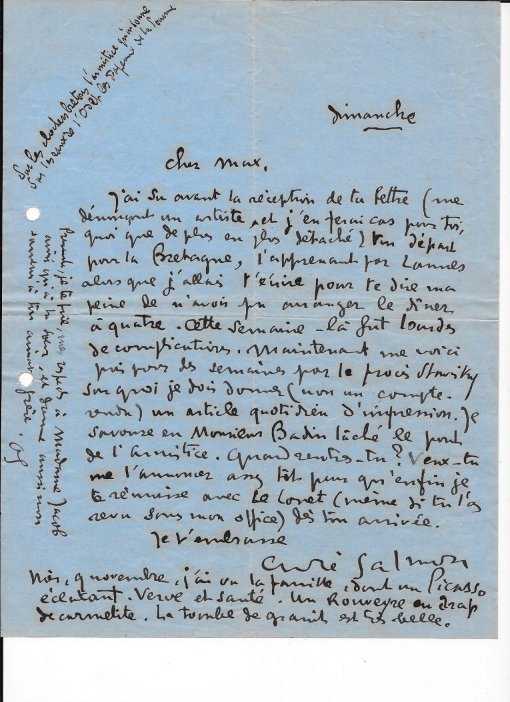 dimanche
cher Max.
J'ai su avant la réception de ta lettre (me
dénonçant un artiste, et j'en ferai cas pour toi,
quoique de plus en plus détaché) ton départ
pour la Bretagne, l'apprenant par Lannes
alors que j'allais t'écrire pour te dire ma
peine de n'avoir pu arranger le dîner
à quatre. Cette semaine-là fut lourde
de complications. Maintenant me voici
pris pour des semaines par le procès Stavisky
sur quoi je dois donner (non un compte-
rendu) un article quotidien d'impression. Je
savoure en Monsieur Badin lâché le pont
de l'armistice. Quand rentres-tu? Veux-tu
me l'annoncer assez tôt pour qu'enfin je
te réunisse avec Le Louet (même si tu l'as
revu sans mon office) dès ton arrivée.
Je t'embrasse
André Salmon
9 novembre, j'ai vu la famille, dont un Picasso
éclatant. Verve et santé. Un Rouveyre en drap
de carmélite. La tombe de granit est très belle.
Présente, je te prie, mes respects à Madame Jacob
ainsi qu'à ta sœur et donne aussi mon
souvenir à ton aimable frère. AS
Sur les clochers bretons l'armistice
Sur les l'Odet les de la Somme